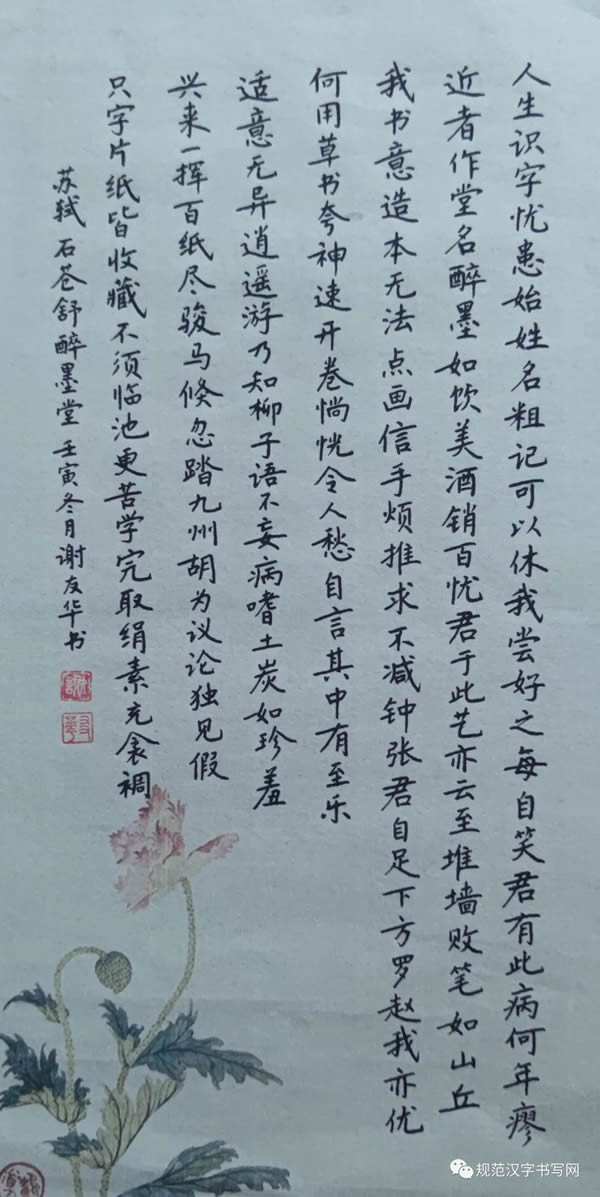 人生识字忧患始姓名粗记可以休我尝好之每自笑君有此病何年瘳
近者作堂名醉墨如饮美酒销百忧君于此艺亦云至堆墙败笔如山丘
我书意造本无法点画信手烦推求不减钟张君自足下方罗赵我亦优
何用草书夸神速开卷惝恍令人愁自言其中有至乐
适意无异逍遥游乃知柳子语不妄病嗜土炭如珍羞
兴来一挥百纸尽骏马倏忽踏九州胡为议论独见假
只字片纸皆收藏不须临池更苦学完取绢素充衾裯
苏轼石苍舒醉墨堂壬寅冬月谢友华书
规范汉字书写网